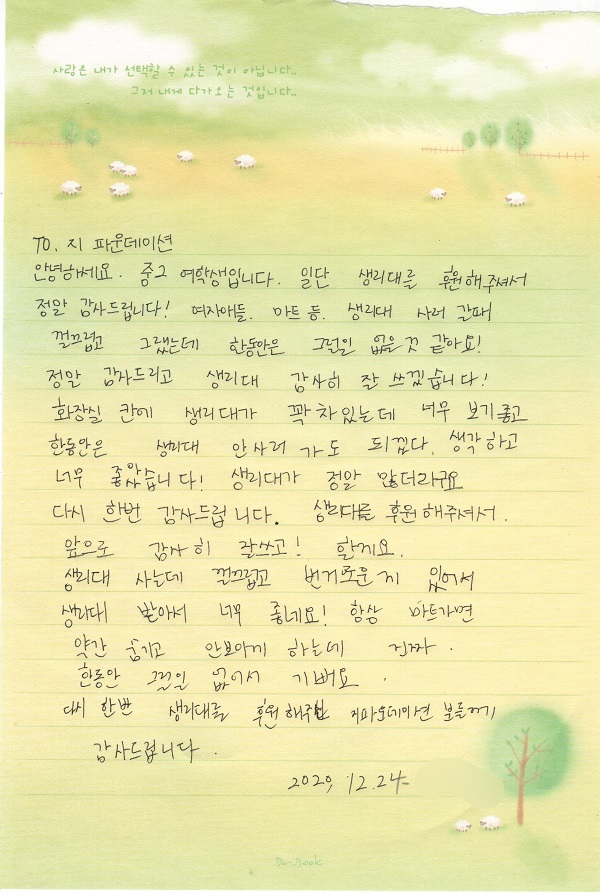 사랑은 내가 선택할 수 있는 것이 아닙니다..
그저 내게 다가오는 것입니다..
TO. 지 파운데이션
안녕하세요. 중2 여학생입니다. 일단 생리대를 후원해주셔서
정말 감사드립니다! 여자애들. 마트 등. 생리대 사러 갈때
껄끄럽고 그랬는데 한동안은 그럴일 없을것 같아요!
정말 감사드리고 생리대 감사히 잘 쓰겠습니다!
화장실 칸에 생리대가 꽉차있는데 너무 보기좋고
한동안은 생리대 안사러 가도 되겠다. 생각하고
너무 좋았습니다! 생리대가 정말 많더라구요
다시 한번 감사드립니다. 생리대를 후원해주셔서.
앞으로 감사히 잘쓰고! 할게요.
생리대 사는데 껄끄럽고 번거로운게 있어서
생리대 받아서 너무 좋네요! 항상 마트가면
약간 숨기고 안보이게 하는데 진짜.
한동안 그럴일 없어서 기뻐요.
다시 한번 생리대를 후원해주신 지파운데이션 분들께
감사드립니다.
2020, 12.24-